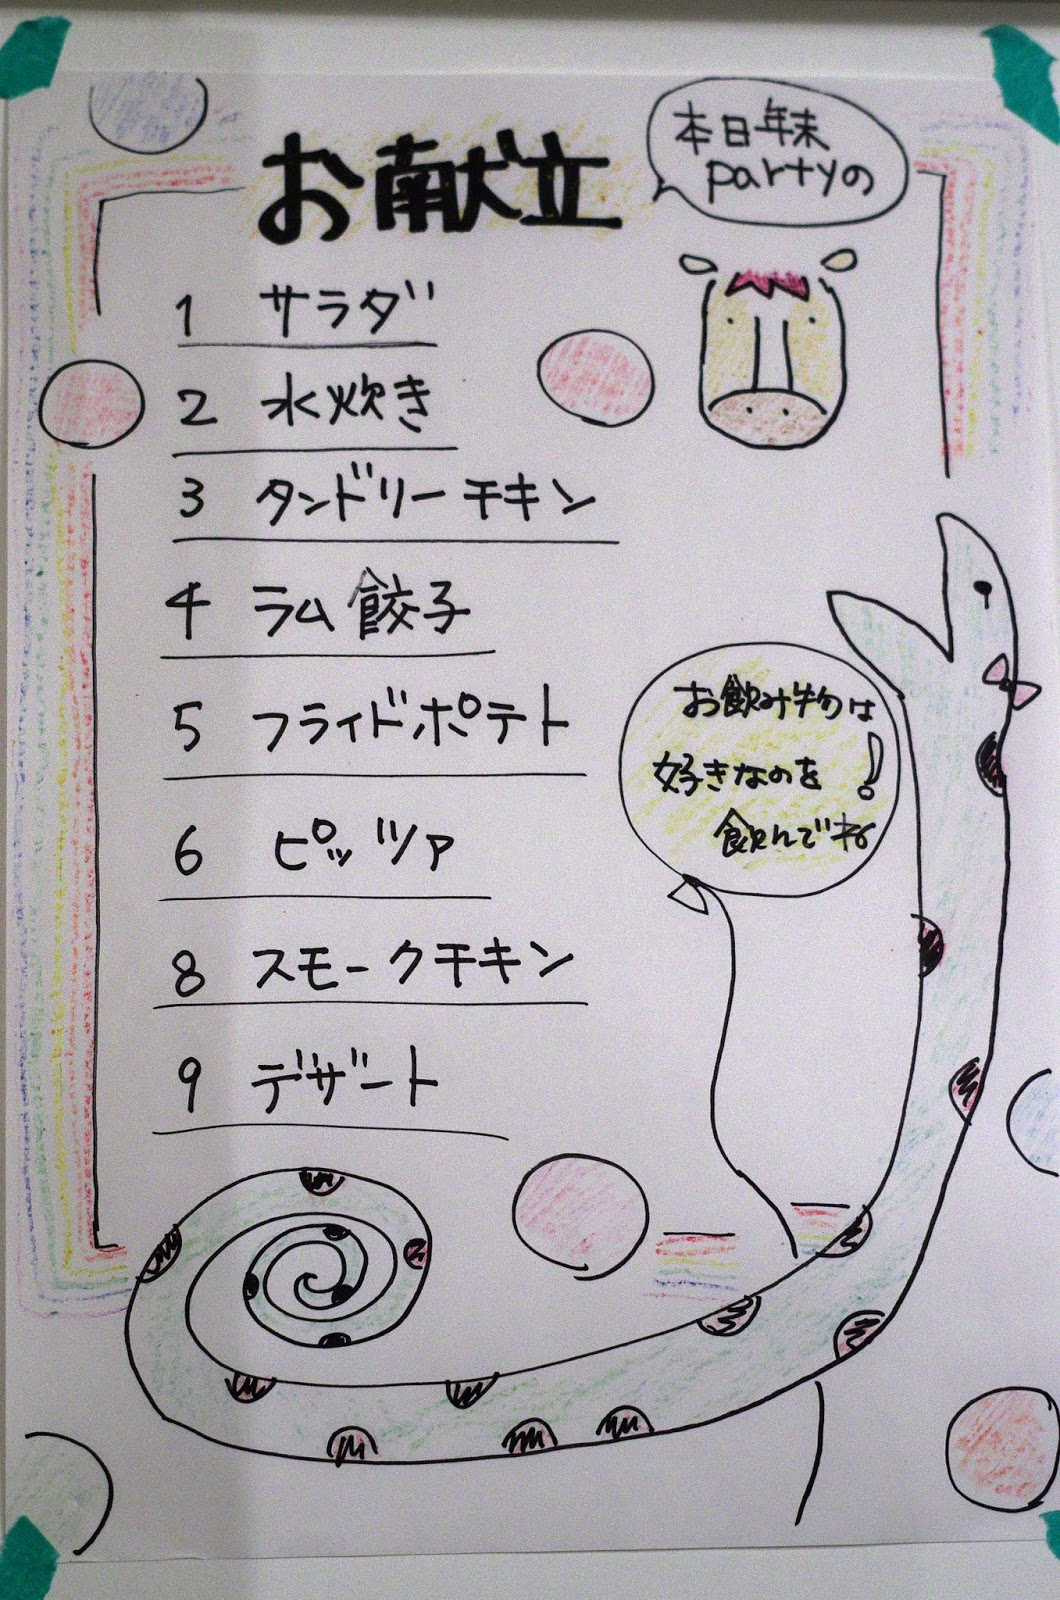 本日年末
partyの
お献立
1 サラダ
2 水炊き
3 タンドリーチキン
4 ラム餃子
5 フライドポテト
6 ピッツァ
8 スモークチキン
9 デザート
お飲み物は
好きなのを
飲んでネ!